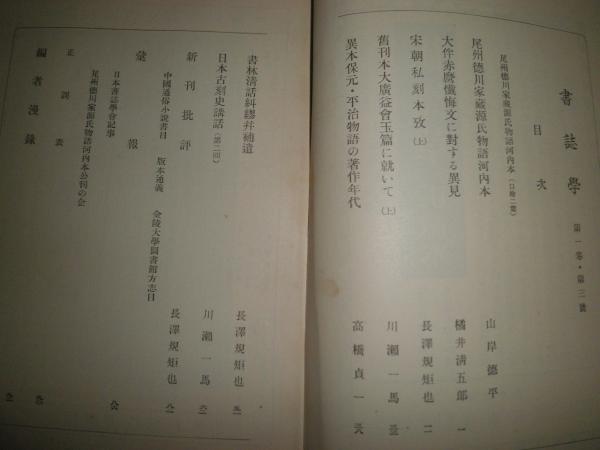 書誌學 第一卷・第三號
目次
尾州德川家藏源氏物語河内本(口繪二葉)
尾州德川家藏源氏物語河内本 山岸德平
大伴赤麿懺悔文に對する異見 橘井清五郎 一
宋朝私刻本攷(上) 長澤規矩也 二
舊刊本大廣益會玉篇に就いて(上) 川瀨一馬
異本保元・平治物語の著作年代 高橋貞一
書林淸話糾繆并補遺 長澤規矩也
日本古刻史講話(第二回) 川瀨一馬
新刊批評 長澤規矩也
中國通俗小説書目 版本通義 金陵大學圖書館方志目
彙報
日本書誌學會記事
尾州德川家源氏物語河内本公刊の會
正誤表
編者漫錄